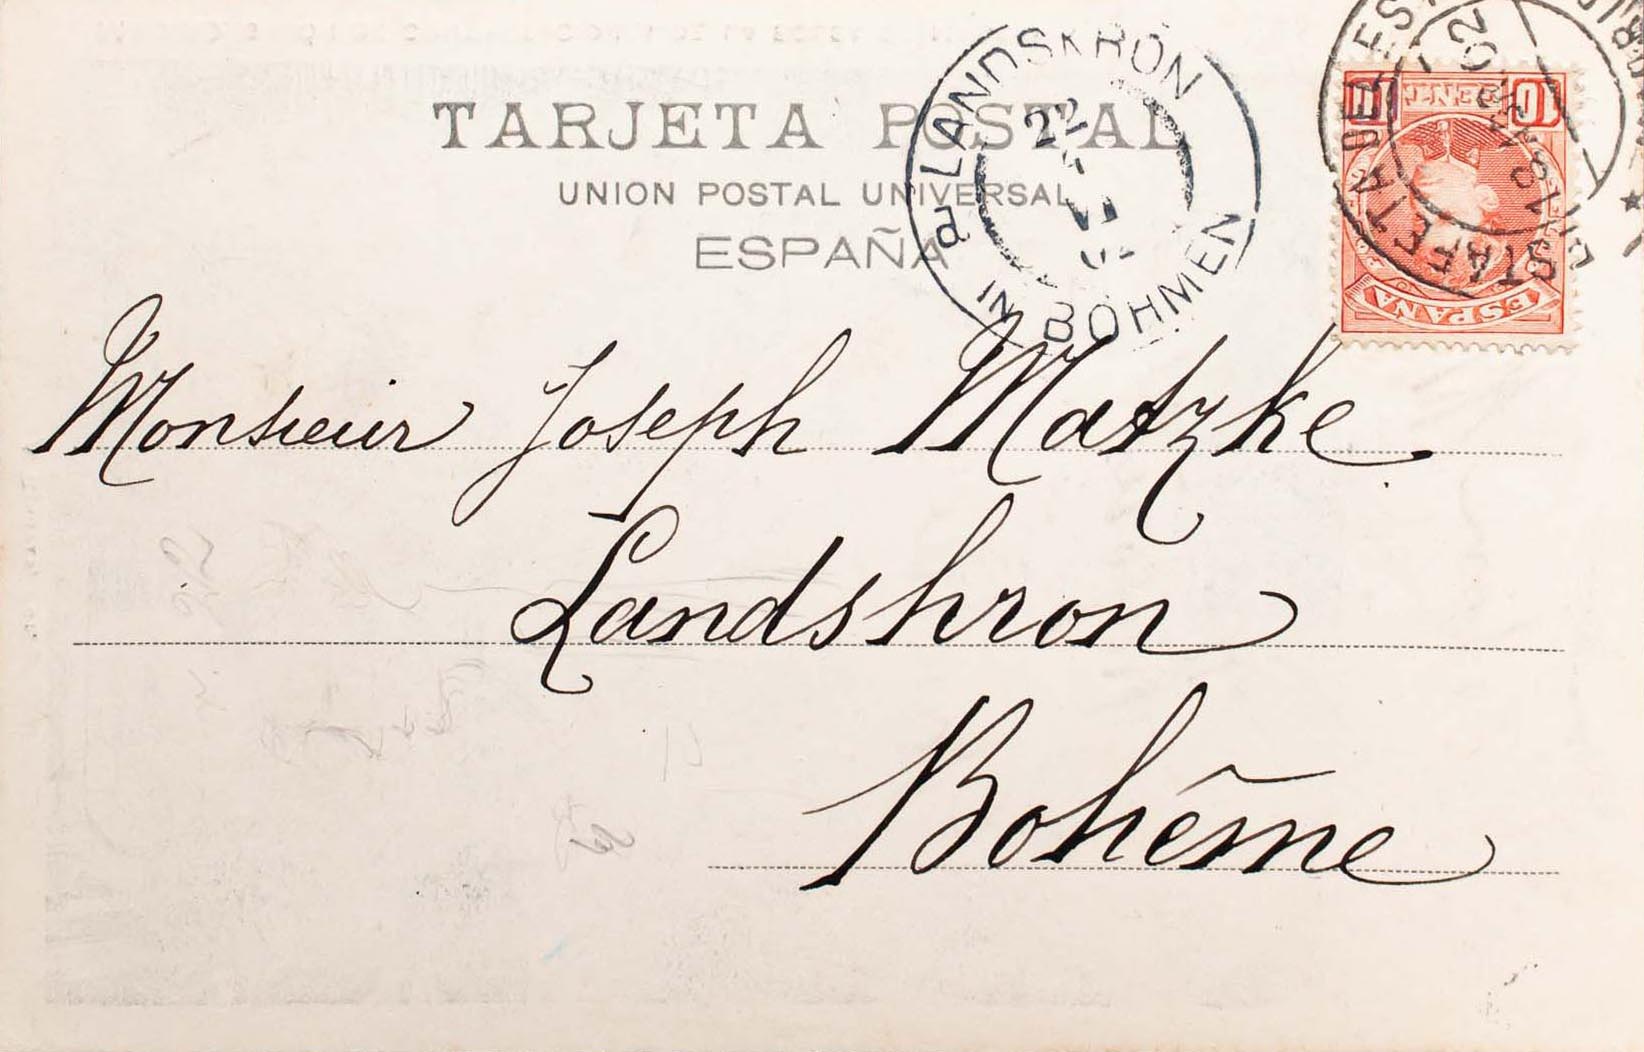 TARJETA POSTAL
UNION POSTAL UNIVERSAL
ESPAÑA
LANDSKRON
IN BÖHMEN
22
VI
10
10
ESPAÑA
ESTAFETA DEL
02
Monsieur Joseph Matzke
Landskron
Bohême